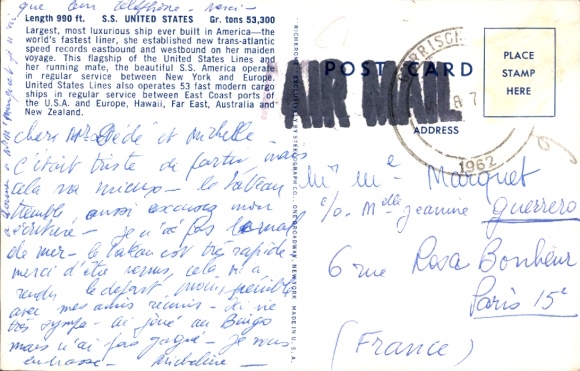 que tem téléphone - merci -
Length 990 ft. S.S. UNITED STATES Gr. tons 53,300
Largest, most luxurious ship ever built in America—the
world's fastest liner, she established new trans-atlantic
speed records eastbound and westbound on her maiden
voyage. This flagship of the United States Lines and
her running mate, the beautiful S.S. America operate
in regular service between New York and Europe.
United States Lines also operates 53 fast modern cargo
ships in regular service between East Coast ports of
the U.S.A. and Europe, Hawaii, Far East, Australia and
New Zealand.
POST CARD
AIR MAIL
PLACE
STAMP
HERE
ADDRESS
1962
chers Mr Dédé et Michelle -
C'était triste de partir mais
cela va mieux - le bateau
tremble, aussi excusez mon
écriture - je n'ai pas le mal
de mer - le bateau est très rapide
merci d'être venus, cela m'a
rendu le départ moins pénible
avec mes amis réunis -
très sympa - ai joué au Bingo
mais n'ai pas gagné - je vous
embrasse - Micheline -
MADE IN U.S.A.
Mr Me Marquet
c/o. Melle Jeanine Guerrero
6 rue Rosa Bonheur
Paris 15e
(France)